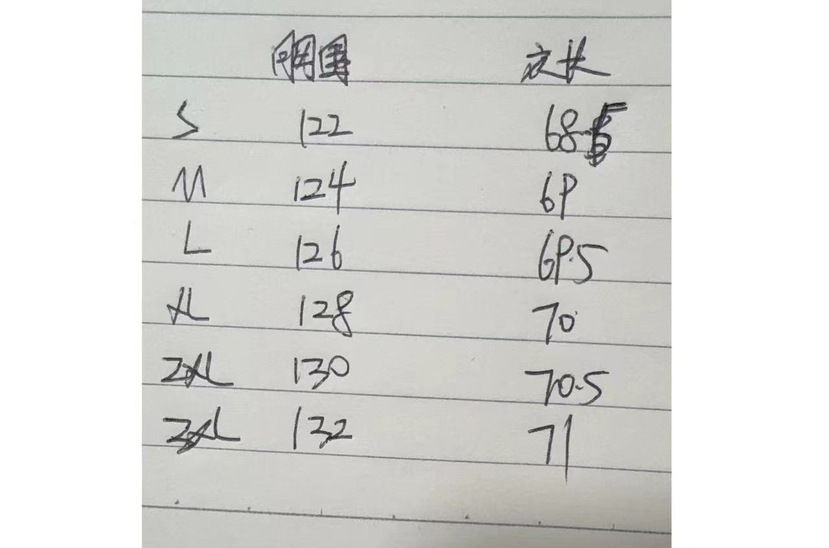 胸围 衣长
S 122 68.5
M 124 69
L 126 69.5
XL 128 70
2XL 130 70.5
3XL 132 71